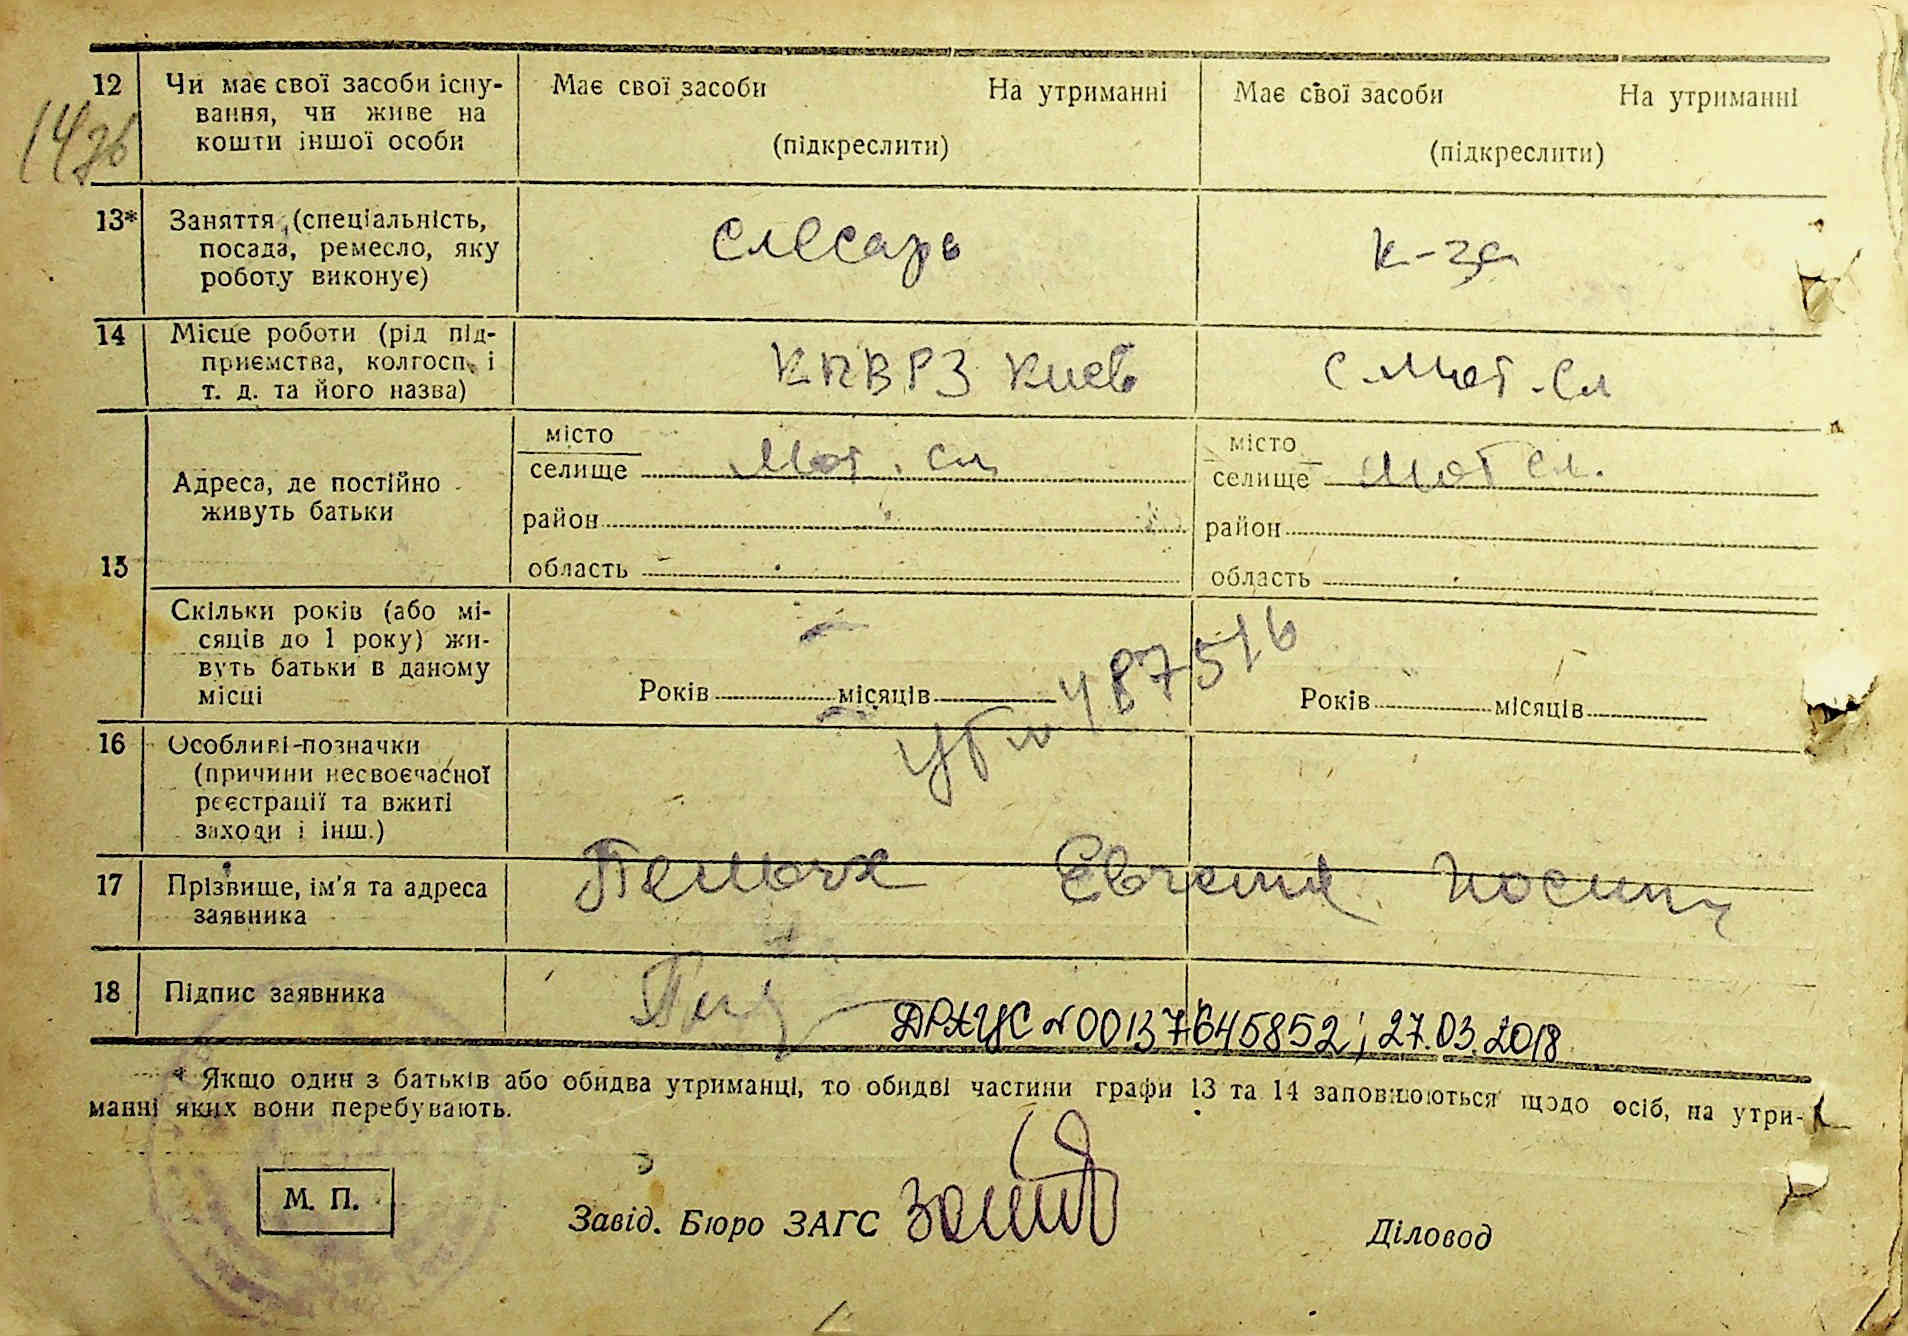 12 Чи має свої засоби існу- Має свої засоби На утриманні Має свої засоби На утриманні
вання, чи живе на
кошти іншої особи (підкреслити) (підкреслити)
13* Заняття (спеціальність,
посада, ремесло, яку слесарь к-за
роботу виконує)
14 Місце роботи (рід під-
приємства, колгосп, і КПВРЗ Киев с. Мот. Сл
т. д. та його назва)
15 Адреса, де постійно
живуть батьки
місто місто
селище Мот. Сл селище Мот Сл.
район район
область область
Скільки років (або мі-
сяців до 1 року) жи-
вуть батьки в даному
місці Років місяців Років місяців
487516
16 Особливі позначки
(причини несвоєчасної
реєстрації та вжиті
заходи і інш.)
17 Прізвище, ім'я та адреса
заявника
18 Підпис заявника
ДРАЦС № 00137645852; 27.03.2018
* Якщо один з батьків або обидва утриманці, то обидві частини графи 13 та 14 заповнюються щодо осіб, на утри-
манні яких вони перебувають.
М. П.
Завід. Бюро ЗАГС Діловод